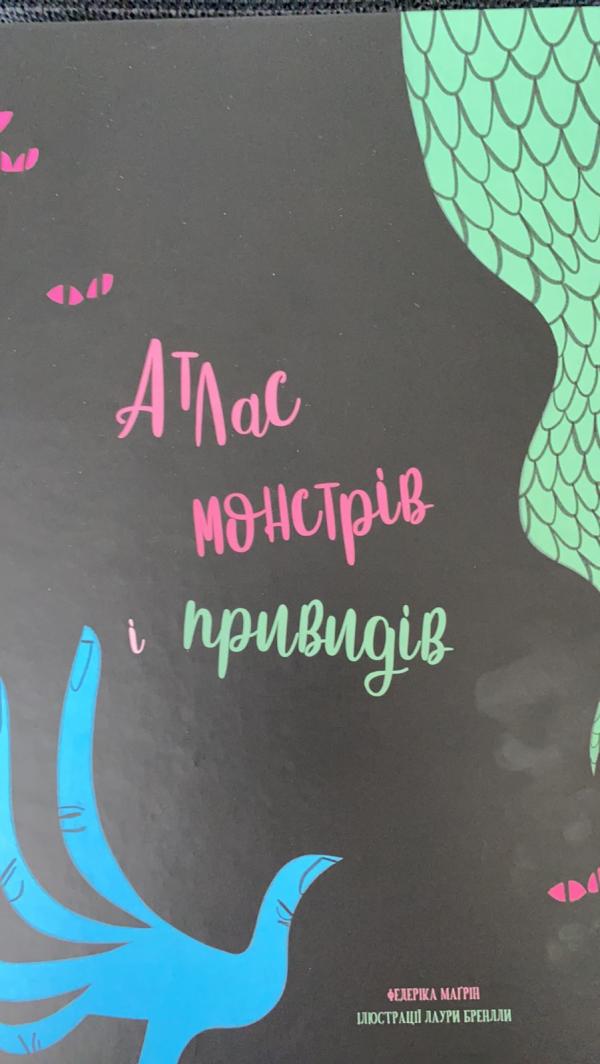 Атлас
монстрів
і привидів
ФЕДЕРІКА МАҐРІН
ІЛЮСТРАЦІЇ ЛАУРИ БРЕНЛЛИ